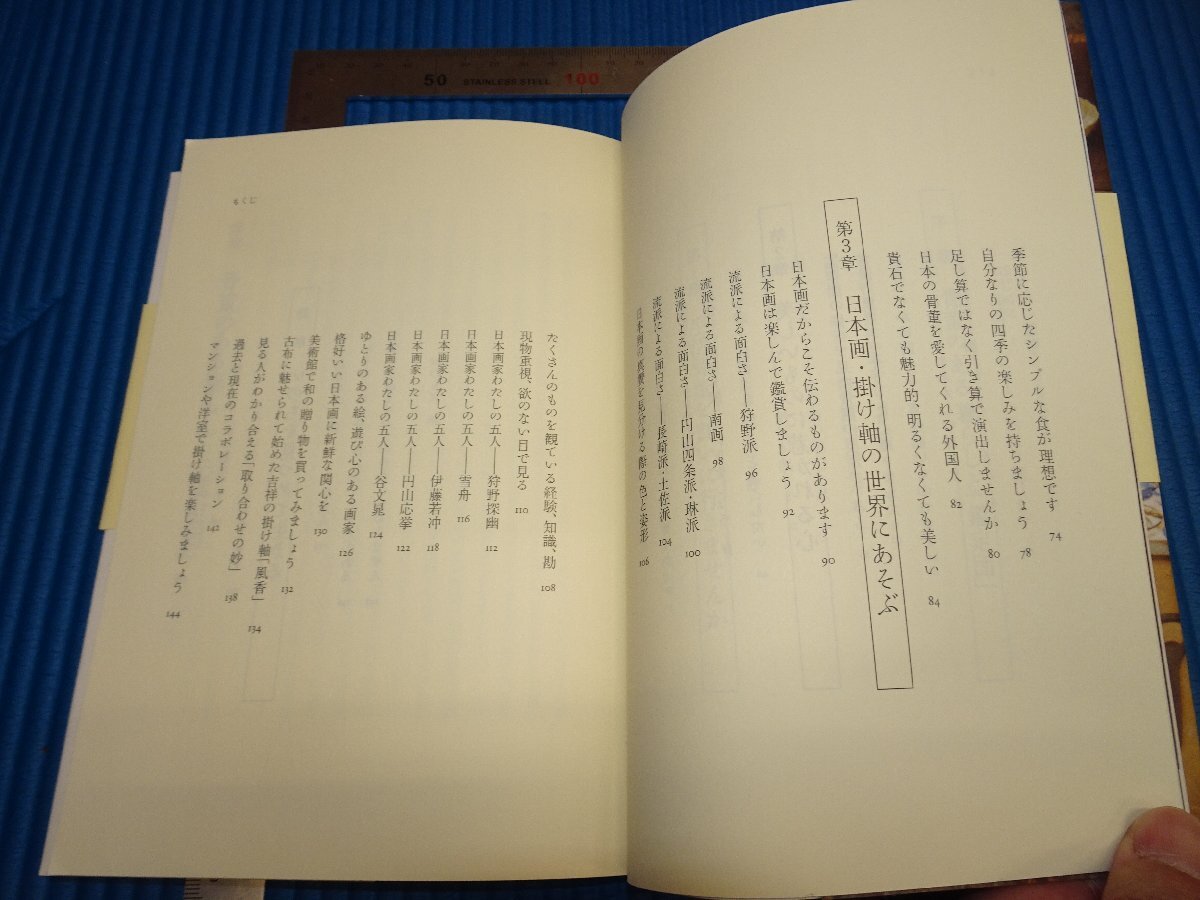 季節に応じたシンプルな食が理想です 74
自分なりの四季の楽しみを持ちましょう 78
足し算ではなく引き算で演出しませんか 80
日本の骨董を愛してくれる外国人 82
貴石でなくても魅力的、明るくなくても美しい 84
第3章 日本画・掛け軸の世界にあそぶ
日本画だからこそ伝わるものがあります 90
日本画は楽しんで鑑賞しましょう 92
流派による面白さ——狩野派 96
流派による面白さ——南画 98
流派による面白さ——円山四条派・琳派 100
流派による面白さ——長崎派・土佐派 104
日本画の真贋を見分ける際の色と姿形 106
たくさんのものを観ている経験、知識、勘 108
現物重視、欲のない目で見る 110
日本画家わたしの五人——狩野探幽 112
日本画家わたしの五人——雪舟 116
日本画家わたしの五人——伊藤若冲 118
日本画家わたしの五人——円山応挙 122
日本画家わたしの五人——谷文晁 124
ゆとりのある絵、遊び心のある画家 126
格好いい日本画に新鮮な関心を 130
美術館で和の贈り物を買ってみましょう 132
古布に魅せられて始めた吉祥の掛け軸「風香」 134
見る人がわかり合える「取り合わせの妙」 138
過去と現在のコラボレーション 142
マンションや洋室で掛け軸を楽しみましょう 144
もくじ
50 STAINLESS STEEL 100